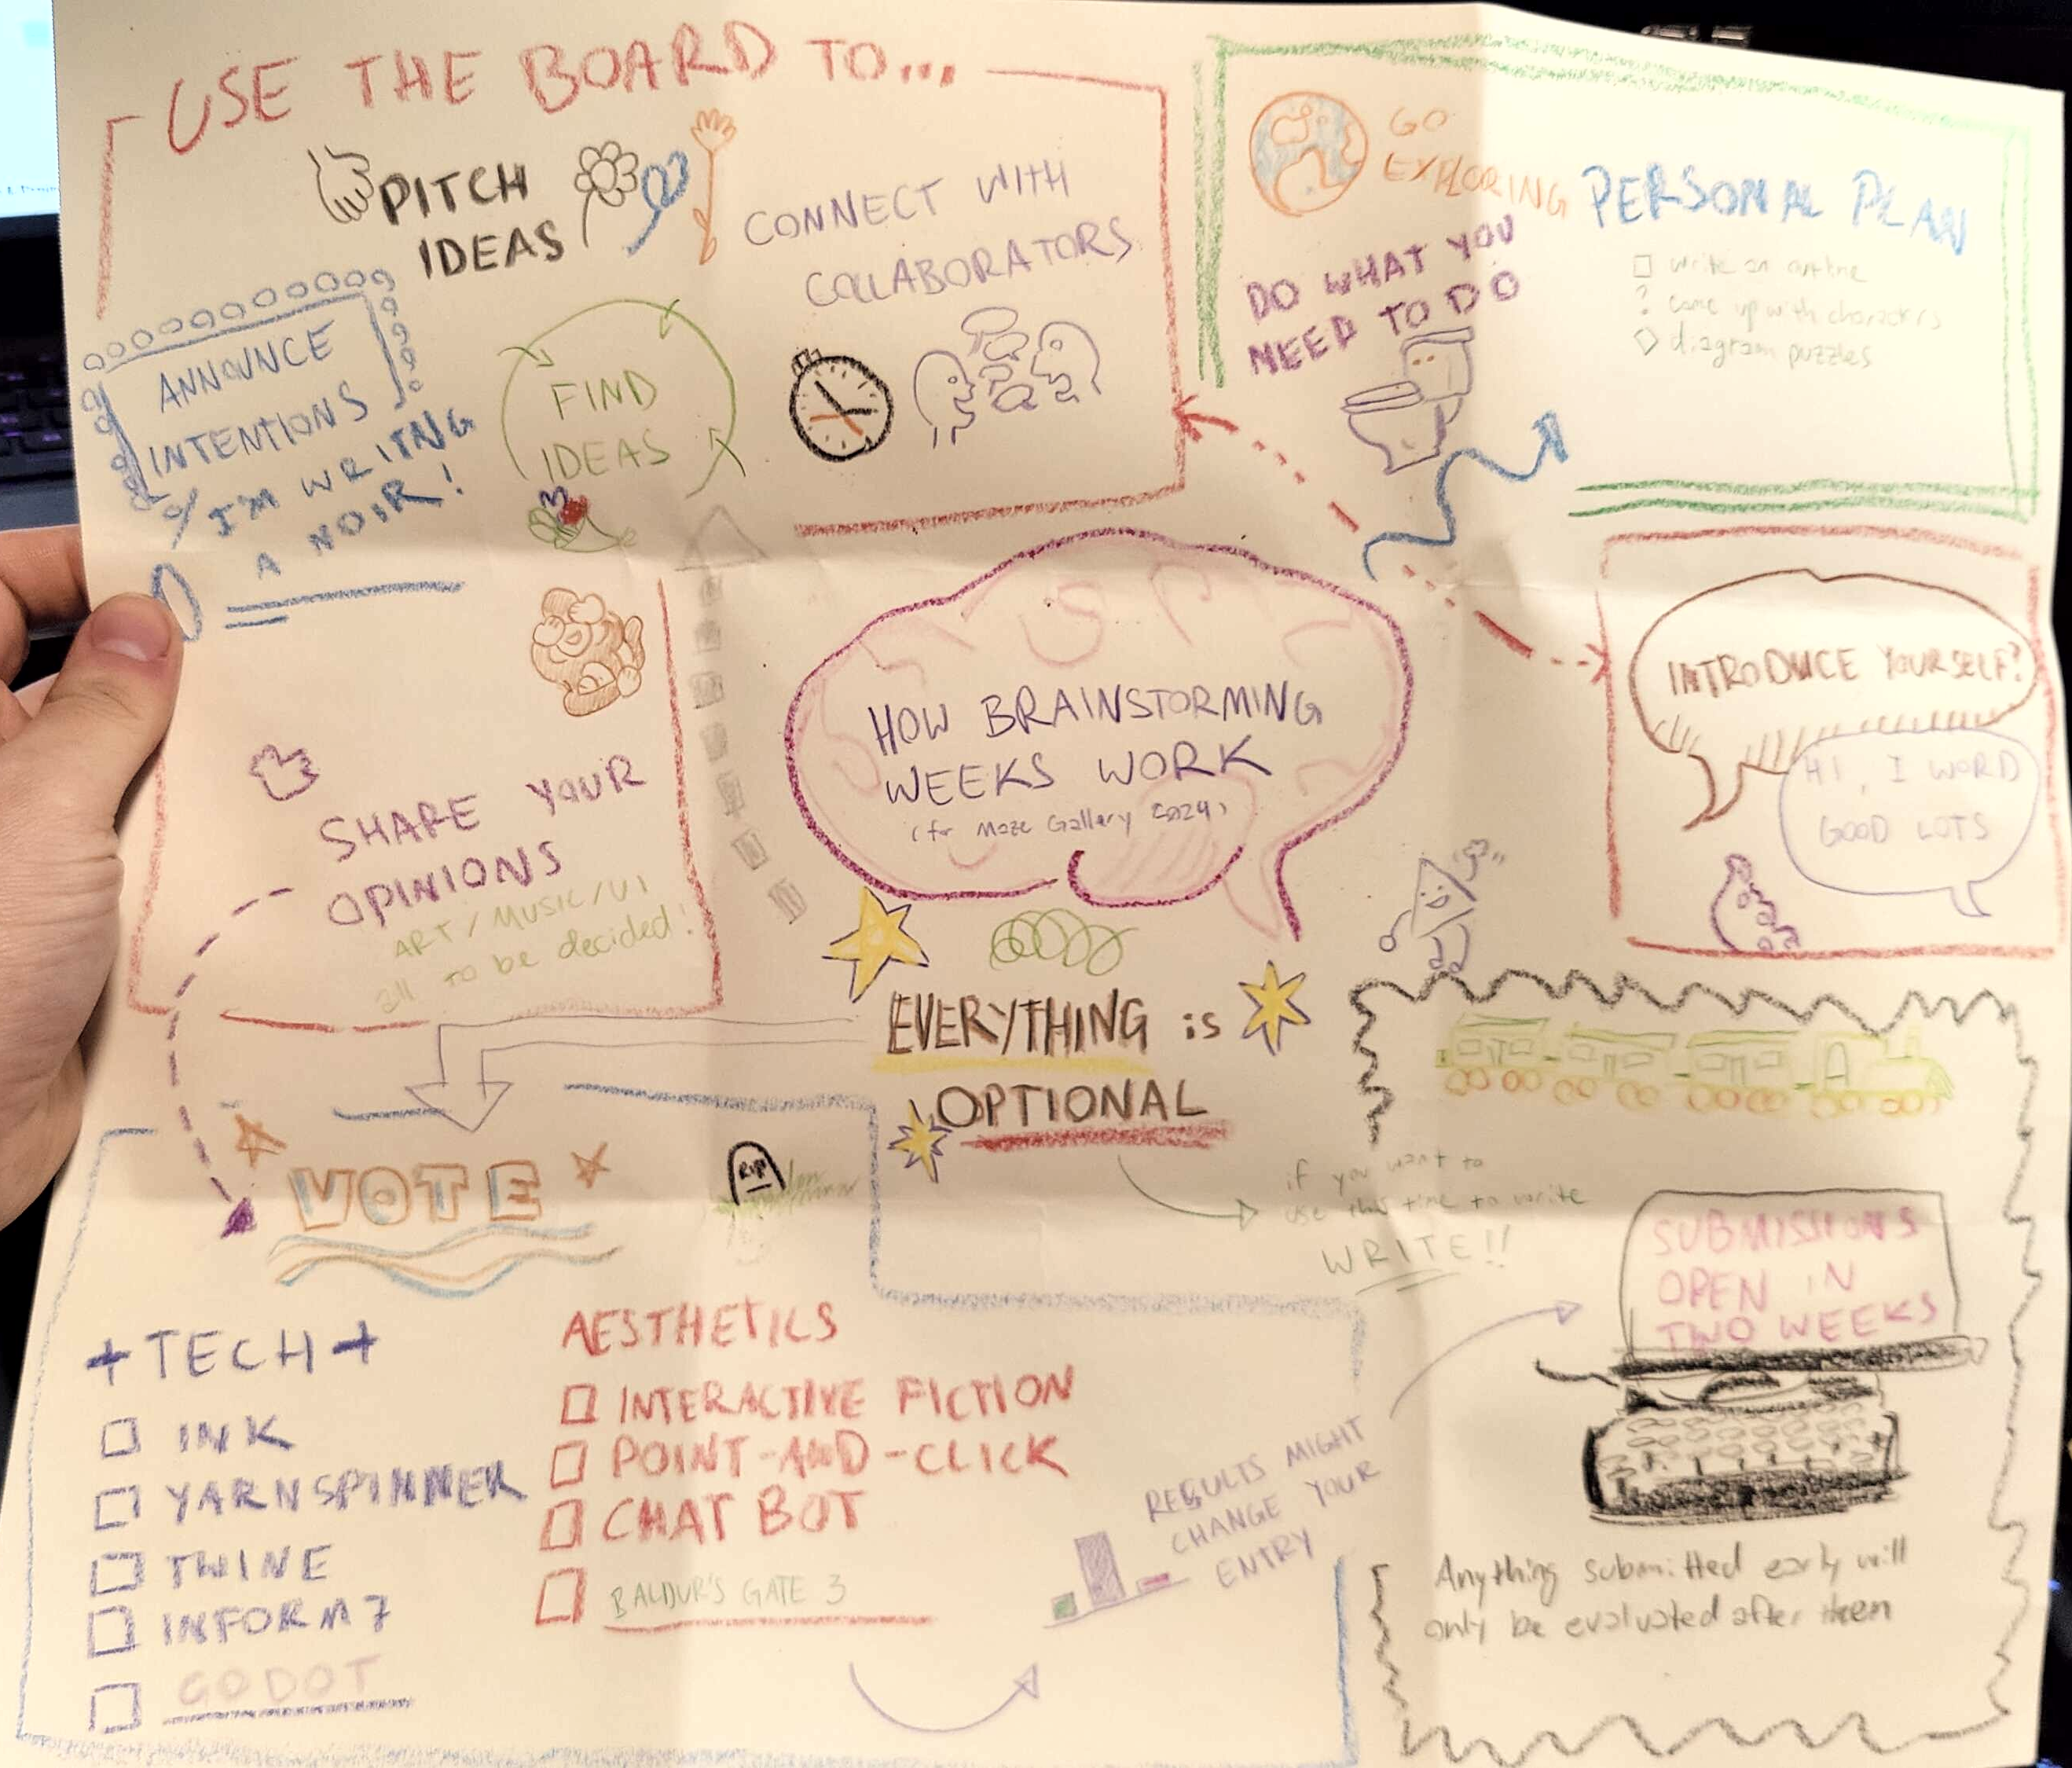 USE THE BOARD TO...
PITCH
IDEAS
CONNECT WITH
COLLABORATORS
ANNOUNCE
INTENTIONS
I'M WRITNG
A NOIR!
FIND
IDEAS
SHARE YOUR
OPINIONS
ART/MUSIC/UI
all to be decided!
GO
EXPLORING
DO WHAT YOU
NEED TO DO
PERSONAL PLAN
write an outline
? come up with characters
diagram puzzles
HOW BRAINSTORMING
WEEKS WORK
(for Maze Gallery 2024)
INTRODUCE YOURSELF?
HI, I WORD
GOOD LOTS
EVERYTHING is
OPTIONAL
if you want to
use this time to write
WRITE!!
VOTE
RIP
+TECH+
INK
YARNSPINNER
TWINE
INFORM7
GODOT
AESTHETICS
INTERACTIVE FICTION
POINT-AND-CLICK
CHAT BOT
BALDUR'S GATE 3
RESULTS MIGHT
CHANGE YOUR
ENTRY
SUBMISSIONS
OPEN IN
TWO WEEKS
Anything submitted early will
only be evaluated after then